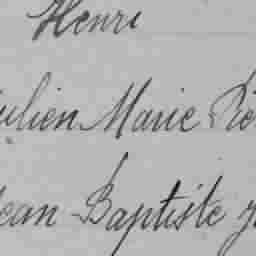 Henri
ulien Marie
Jean Baptiste